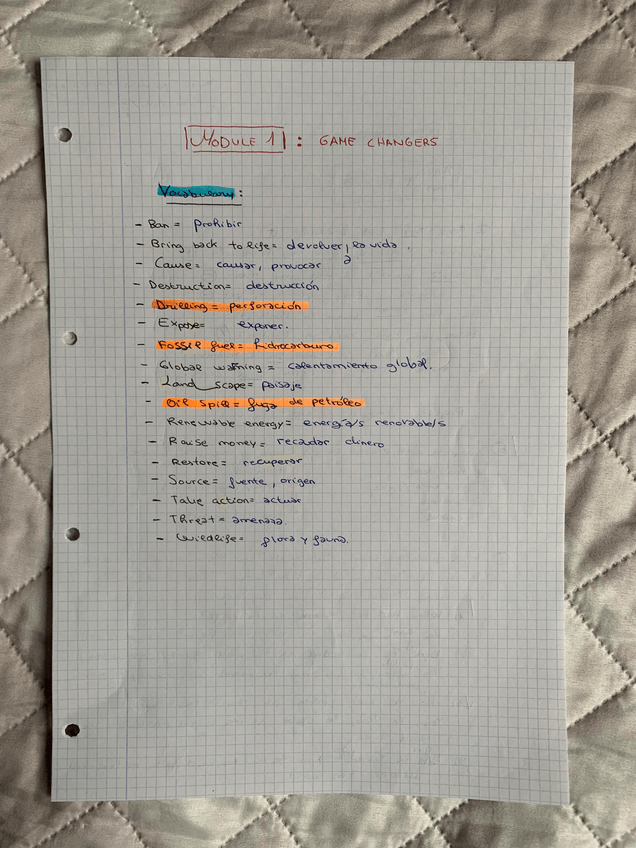 MODULE 1 : GAME CHANGERS
Vocabulary:
- Ban = prohibir
- Bring back to life = devolver, la vida.
- Cause = causar, provocar a
- Destruction = destrucción
- Drilling = perforación
- Expose = exponer.
- Fossil fuel = hidrocarburo
- Global warning = calentamiento global.
- Land scape = paisaje
- Oil spill = fuga de petróleo
- Renewable energy = energía/s renovable/s
- Raise money = recaudar dinero
- Restore = recuperar
- Source = fuente, origen
- Take action = actuar
- Threat = amenaza.
- Wildlife = flora y fauna.